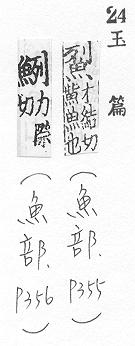 24
玉篇
才結切
魚也
(魚部.P355)
鮤力際切
(魚部.P356)